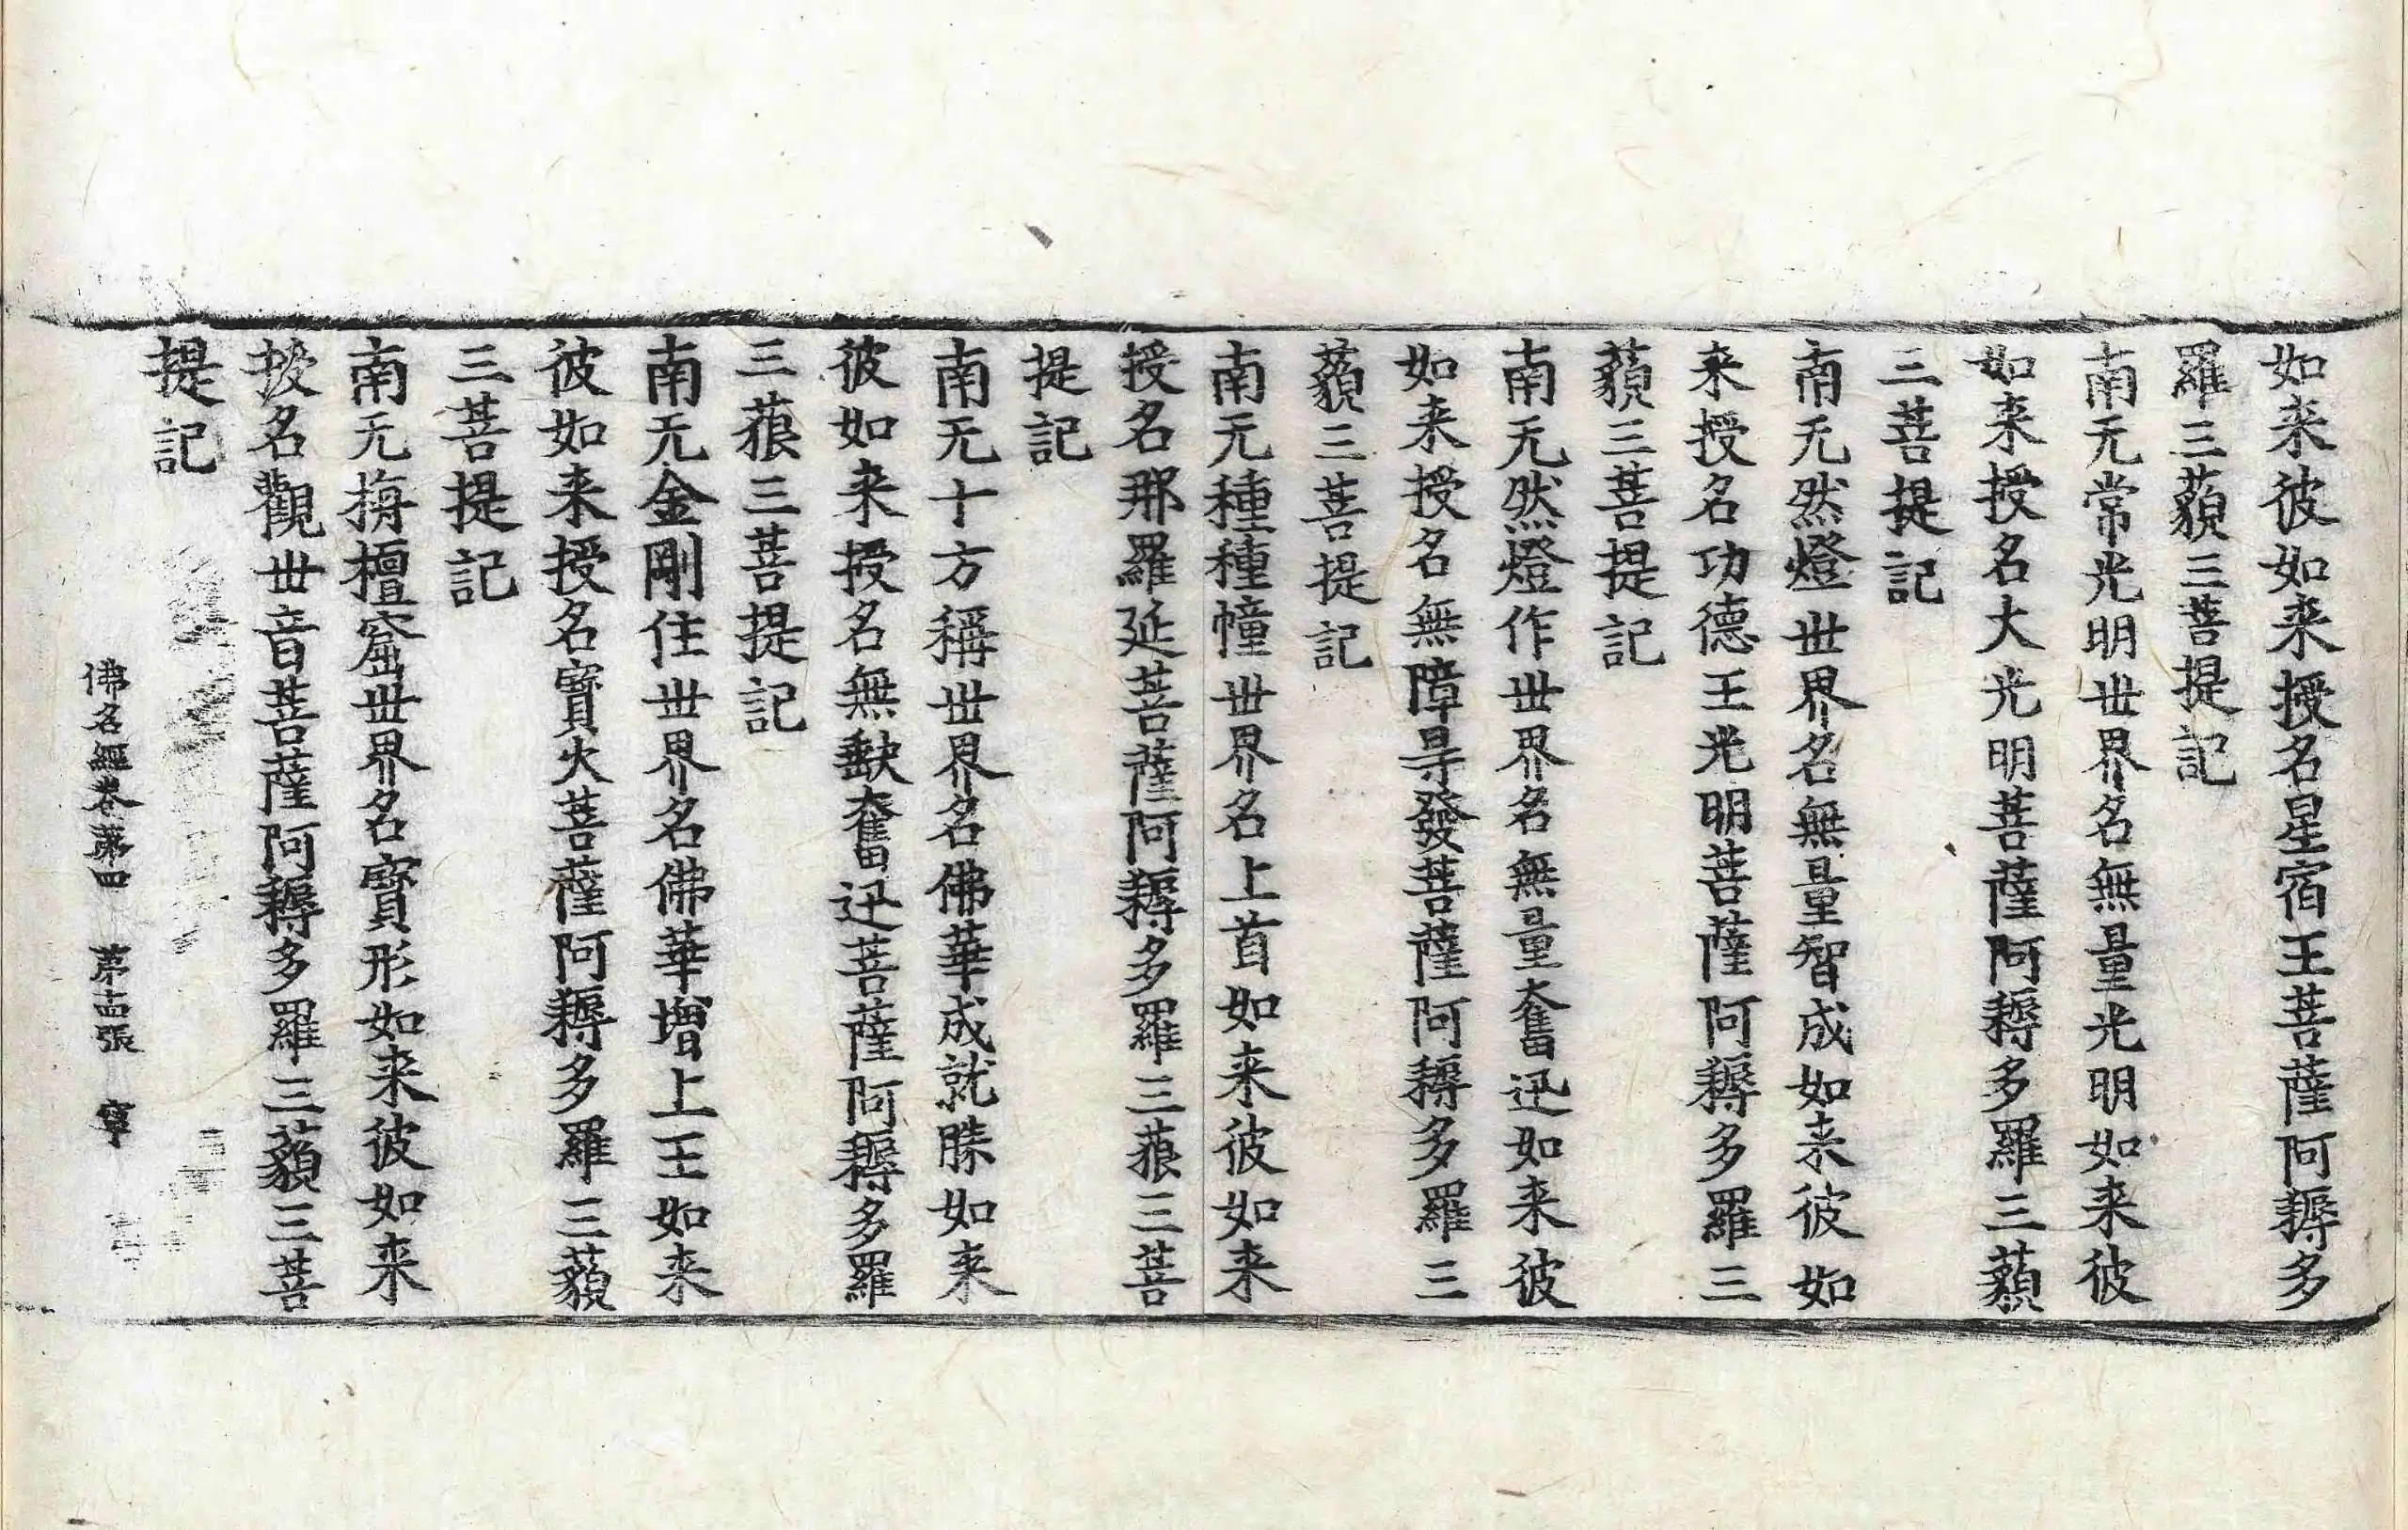 如来彼如来授名星宿王菩薩阿耨多
羅三藐三菩提記
南无常光明世界名無量光明如来彼
如来授名大光明菩薩阿耨多羅三藐
三菩提記
南无然燈世界名無量智成如来彼如
来授名功德王光明菩薩阿耨多羅三
藐三菩提記
南无然燈作世界名無量奮迅如来彼
如来授名無障㝵發菩薩阿耨多羅三
藐三菩提記
南无種種幢世界名上首如来彼如来
授名那羅延菩薩阿耨多羅三藐三菩
提記
南无十方稱世界名佛華成就勝如来
彼如来授名無㱁奮迅菩薩阿耨多羅
三藐三菩提記
南无金剛住世界名佛華增上王如来
彼如来授名寶火菩薩阿耨多羅三藐
三菩提記
南无栴檀窟世界名寶形如来彼如来
授名觀世音菩薩阿耨多羅三藐三菩
提記
佛名經卷第四 第十四張